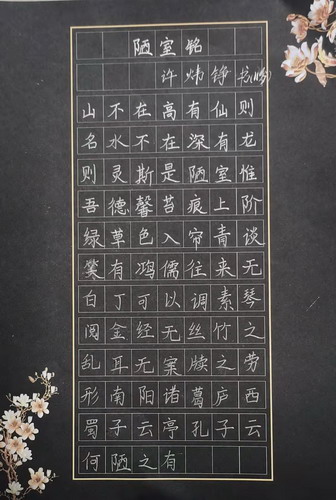 陋室铭
许炜铮
山不在高有仙则
名水不在深有龙
则灵斯是陋室惟
吾德馨苔痕上阶
绿草色入帘青谈
笑有鸿儒往来无
白丁可以调素琴
阅金经无丝竹之
乱耳无案牍之劳
形南阳诺葛庐西
蜀子云亭孔子云
何陋之有